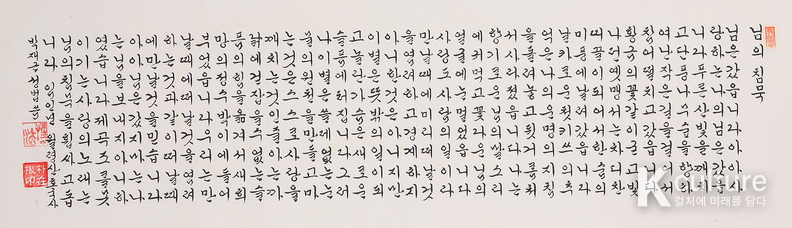 님의 침묵
님은갔읍니다아아사
랑하는나의님은갔읍
니다푸른산빛을깨치
고단풍나무숲을향하
여난적은길을걸어서
참어떨치고갔읍니다
황금의꽃같이굳고빛
나던옛맹서는차디찬
띠끌이되어서한숨의
미풍에날러갔읍니다
날카로운첫키쓰의추
억은나의운명의지침
을돌려놓고뒷걸음쳐
서사러졌읍니다나는
향기로운님의말소리
에귀먹고꽃다운님의
얼굴에눈멀었읍니다
사랑도사람의일이라
만날때에미리떠날것
을염려하고경계하지
아니한것은아니지만
이별은뜻밖의일이되
고놀란가슴은새로운
슬픔에터집니다그러
나이별을쓸데없는눈
물의원천을만들고마
는것은스스로사랑을
깨치는것인줄아는까
닭에걷잡을수없는슬
픔의힘을옮겨서새희
망의정수박이에들어
부었읍니다우리는만
날때에떠날것을염려
하는것과같이떠날때
에다시만날것을믿습
니다아아님은갔지마
는나는님을보내지아
니하였읍니다제곡조
를못이기는사랑의노
래는님의침묵을휩싸고돕
니다
K culture
컬처에 미래를 담다